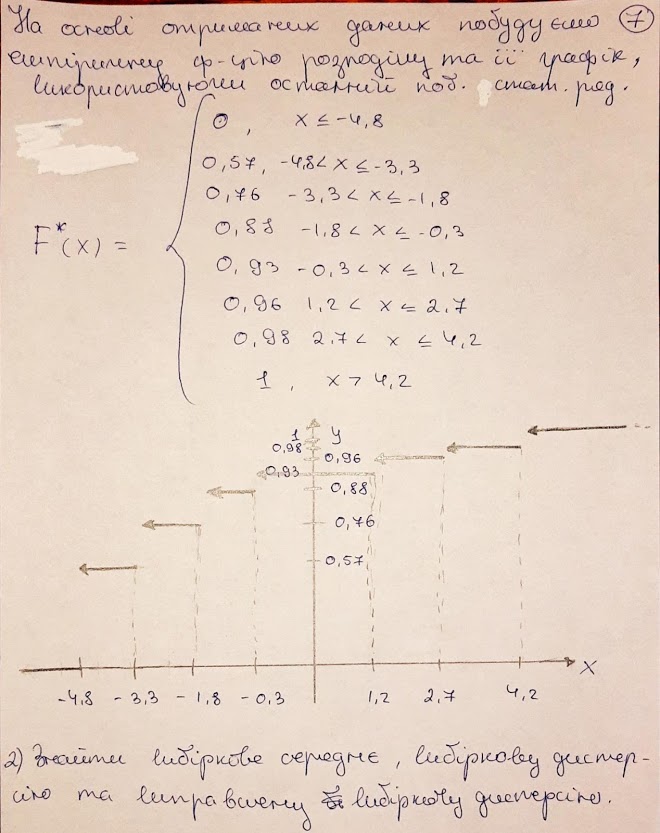 На основі отриманих даних побудуємо 7
емпіричну ф-цію розподілу та її графік,
використовуючи останній поб. стат. ряд.
0, x ≤ -4,8
0,57, -4,8 < x ≤ -3,3
0,76 -3,3 < x ≤ -1,8
0,88 -1,8 < x ≤ -0,3
F*(x) =
0,93 -0,3 < x ≤ 1,2
0,96 1,2 < x ≤ 2,7
0,98 2,7 < x ≤ 4,2
1, x > 4,2
1 y
0,98
0,96
0,93
0,88
0,76
0,57
x
-4,8 -3,3 -1,8 -0,3 1,2 2,7 4,2
2) Знайти вибіркове середнє, вибіркову диспер-
сію та виправлену вибіркову дисперсію.